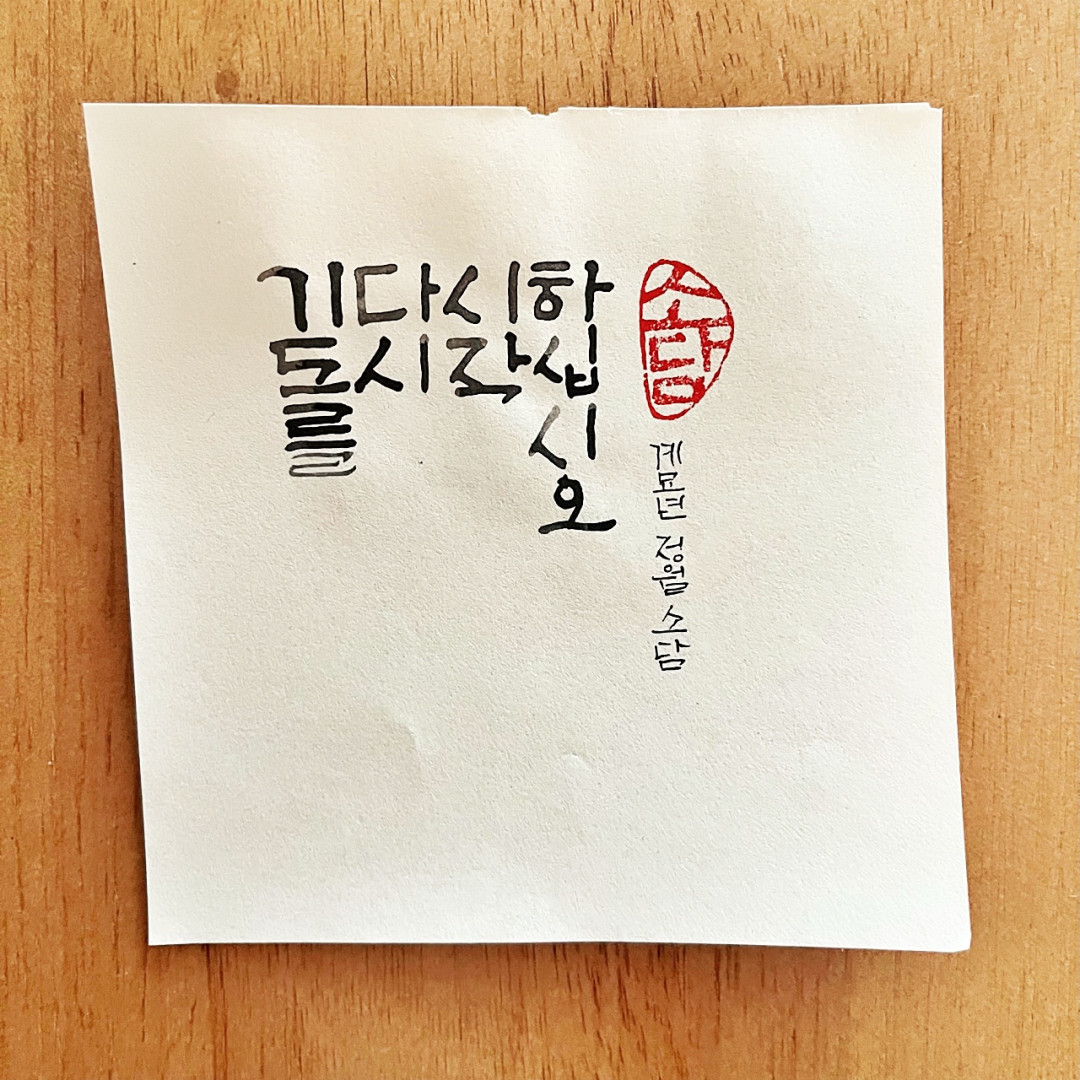 기도를
다시
시작
하십시오
소담
계묘년 정월 소담